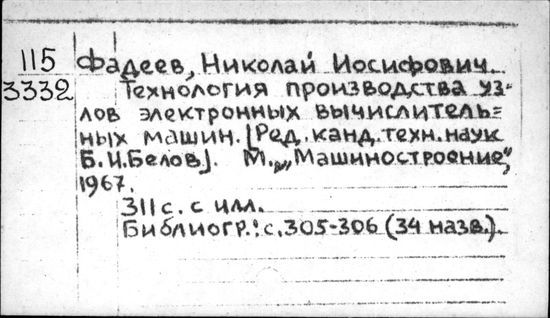 115
3332
Фадеев, Николай Иосифович.
Технология производства уз-
лов электронных вычислитель-
ных машин. [Ред. канд. техн. наук
Б. И. Белов]. М., „Машиностроение",
1967.
311 с. с илл.
Библиогр.: с. 305-306 (34 назв.).